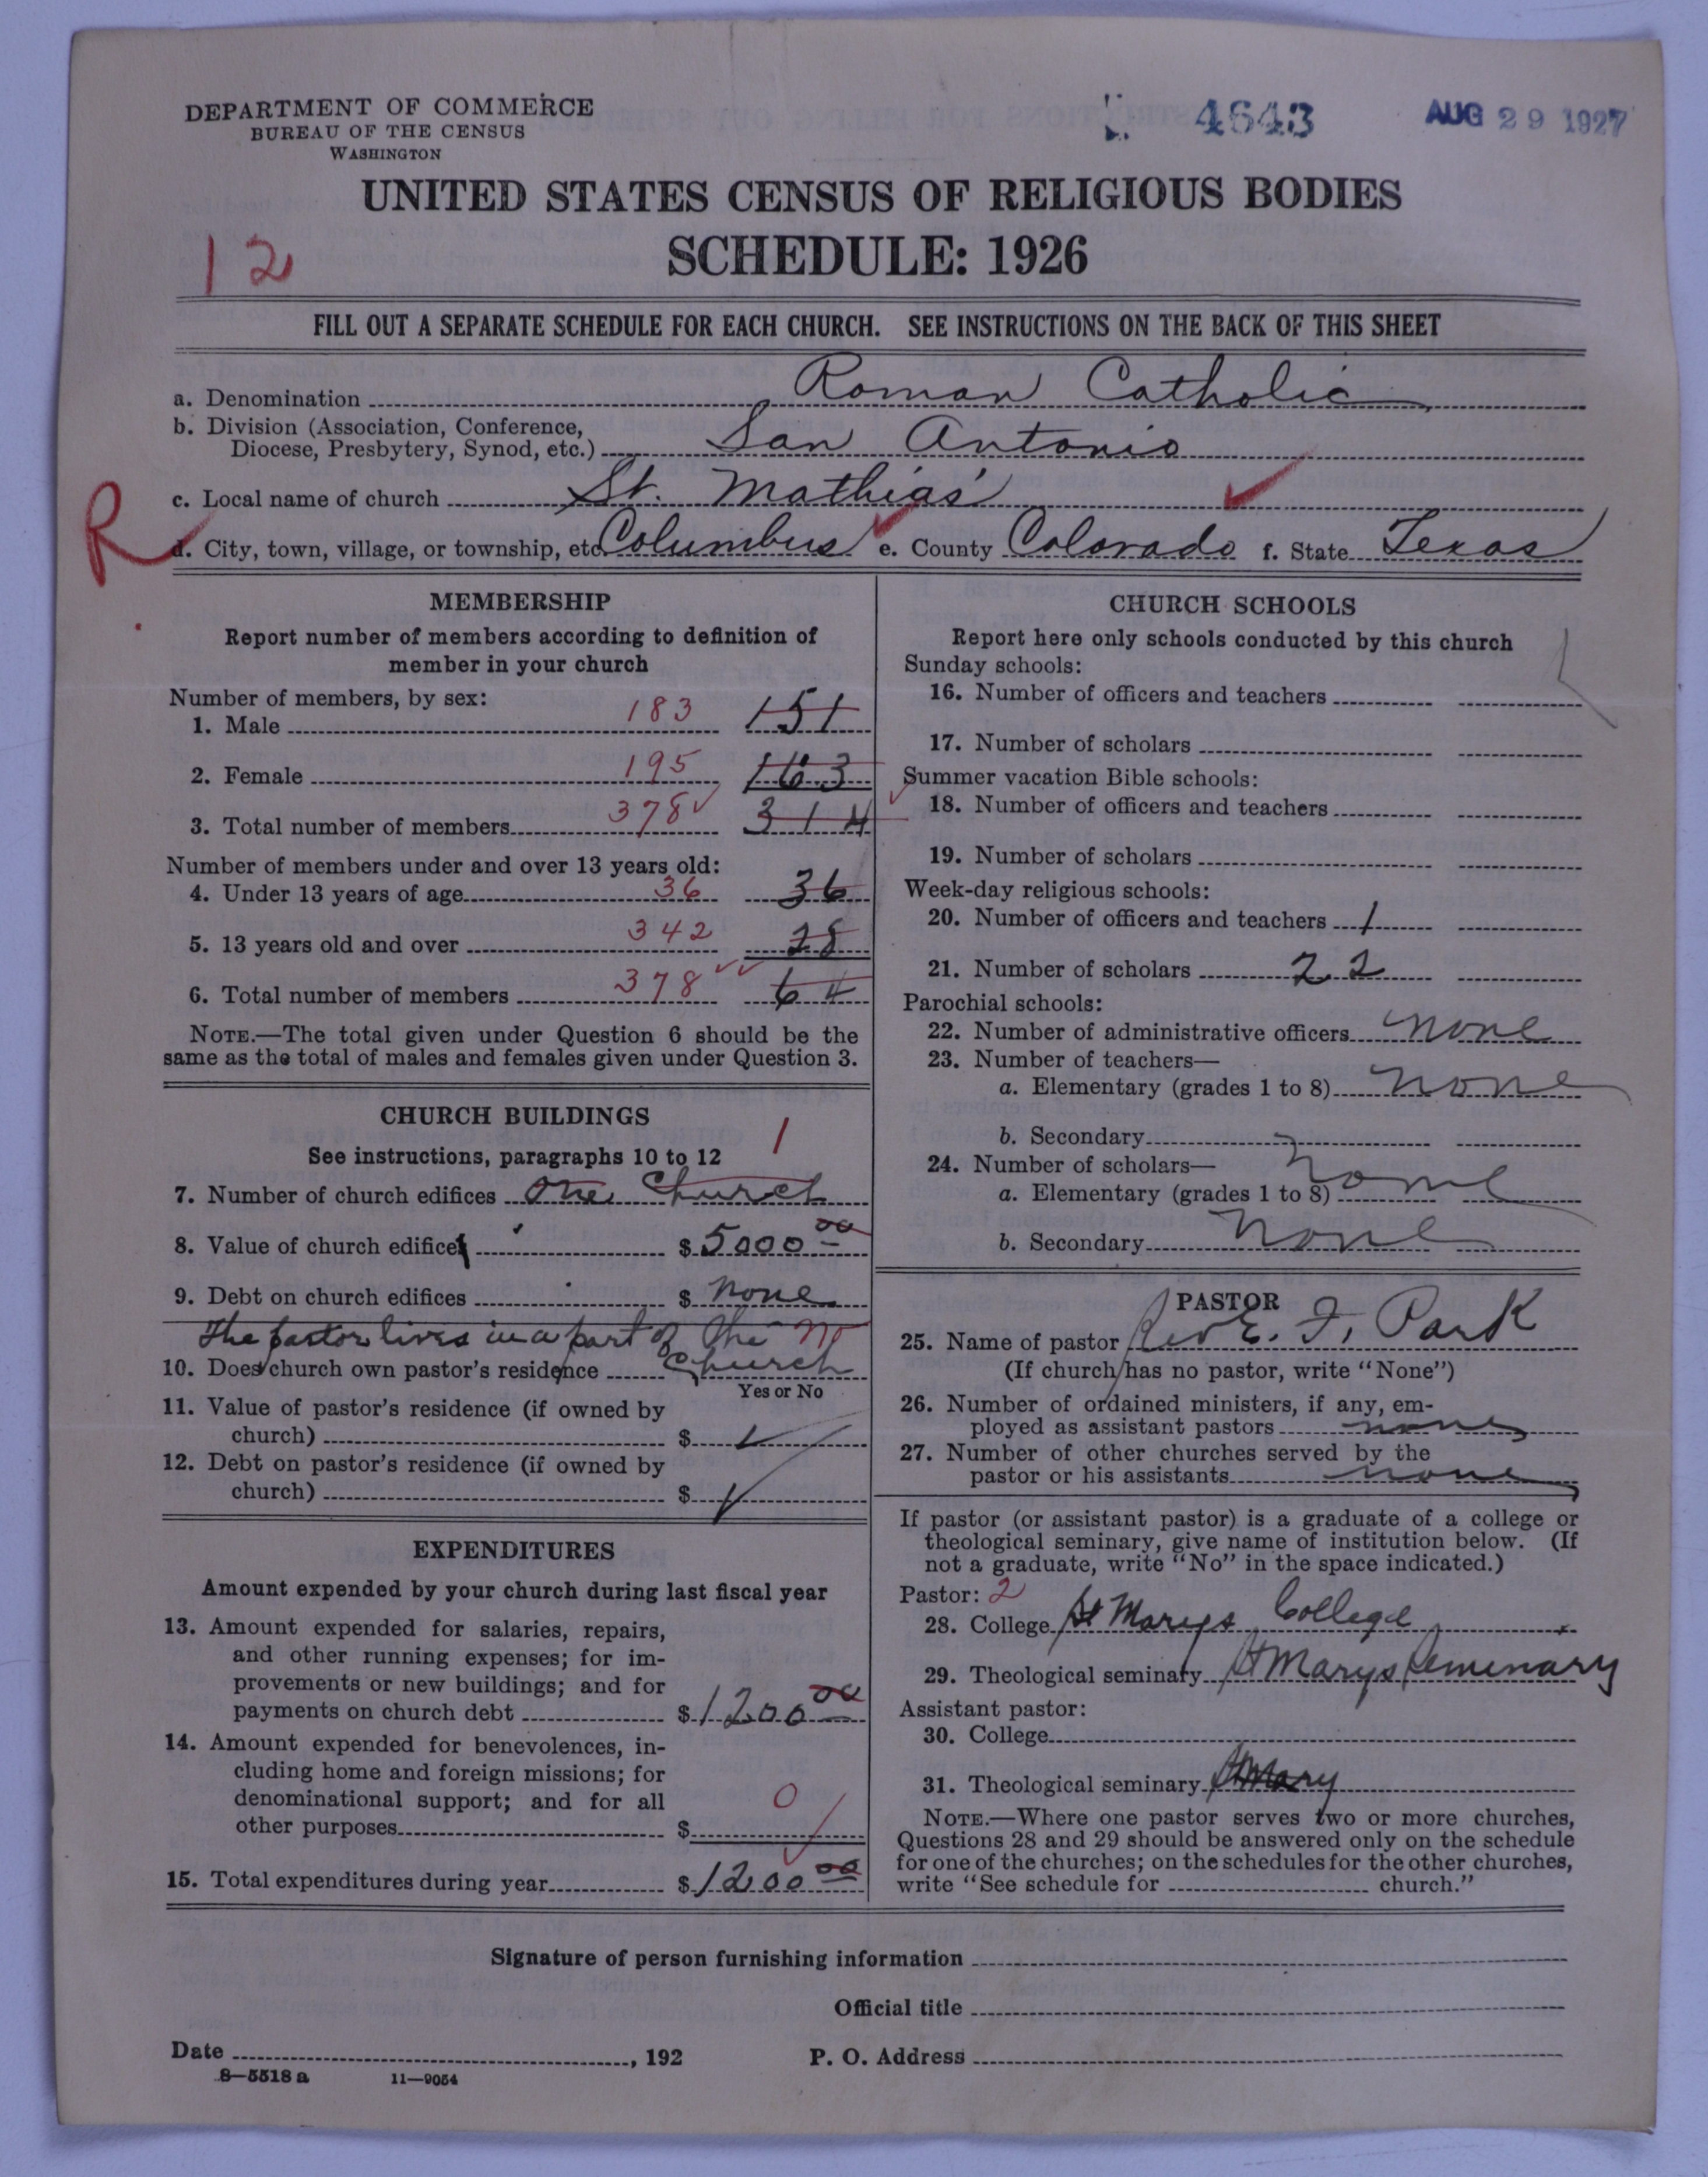 DEPARTMENT OF COMMERCE
BUREAU OF THE CENSUS
WASHINGTON
4643
AUG 29 1927
UNITED STATES CENSUS OF RELIGIOUS BODIES
SCHEDULE: 1926
12
FILL OUT A SEPARATE SCHEDULE FOR EACH CHURCH. SEE INSTRUCTIONS ON THE BACK OF THIS SHEET
a. Denomination Roman Catholic
b. Division (Association, Conference,
Diocese, Presbytery, Synod, etc.) San Antonio
c. Local name of church St. Mathias'
R
d. City, town, village, or township, etc. Columbus e. County Colorado f. State Texas
MEMBERSHIP
Report number of members according to definition of
member in your church
Number of members, by sex:
1. Male 183 151
2. Female 195 163
3. Total number of members 378 314
Number of members under and over 13 years old:
4. Under 13 years of age 36 36
5. 13 years old and over 342 28
6. Total number of members 378 64
NOTE.—The total given under Question 6 should be the
same as the total of males and females given under Question 3.
CHURCH BUILDINGS
See instructions, paragraphs 10 to 12 1
7. Number of church edifices One Church
8. Value of church edifices $ 5000 00
9. Debt on church edifices $ None
The pastor lives in a part of the no
10. Does church own pastor's residence Church
Yes or No
11. Value of pastor's residence (if owned by
church) $
12. Debt on pastor's residence (if owned by
church) $
EXPENDITURES
Amount expended by your church during last fiscal year
13. Amount expended for salaries, repairs,
and other running expenses; for im-
provements or new buildings; and for
payments on church debt $ 1200 00
14. Amount expended for benevolences, in-
cluding home and foreign missions; for
denominational support; and for all
other purposes $ 0
15. Total expenditures during year $ 1200 00
CHURCH SCHOOLS
Report here only schools conducted by this church
Sunday schools:
16. Number of officers and teachers
17. Number of scholars
Summer vacation Bible schools:
18. Number of officers and teachers
19. Number of scholars
Week-day religious schools:
20. Number of officers and teachers 1
21. Number of scholars 22
Parochial schools:
22. Number of administrative officers none
23. Number of teachers—
a. Elementary (grades 1 to 8) none
b. Secondary
24. Number of scholars—
a. Elementary (grades 1 to 8) none
b. Secondary none
PASTOR
25. Name of pastor Rev E. F. Park
(If church has no pastor, write "None")
26. Number of ordained ministers, if any, em-
ployed as assistant pastors none
27. Number of other churches served by the
pastor or his assistants none
If pastor (or assistant pastor) is a graduate of a college or
theological seminary, give name of institution below. (If
not a graduate, write "No" in the space indicated.)
Pastor: 2
28. College St Marys College
29. Theological seminary St Marys Seminary
Assistant pastor:
30. College
31. Theological seminary St Mary
NOTE.—Where one pastor serves two or more churches,
Questions 28 and 29 should be answered only on the schedule
for one of the churches; on the schedules for the other churches,
write "See schedule for church."
Signature of person furnishing information
Official title
Date , 192 P. O. Address
8—5518 a 11—9054